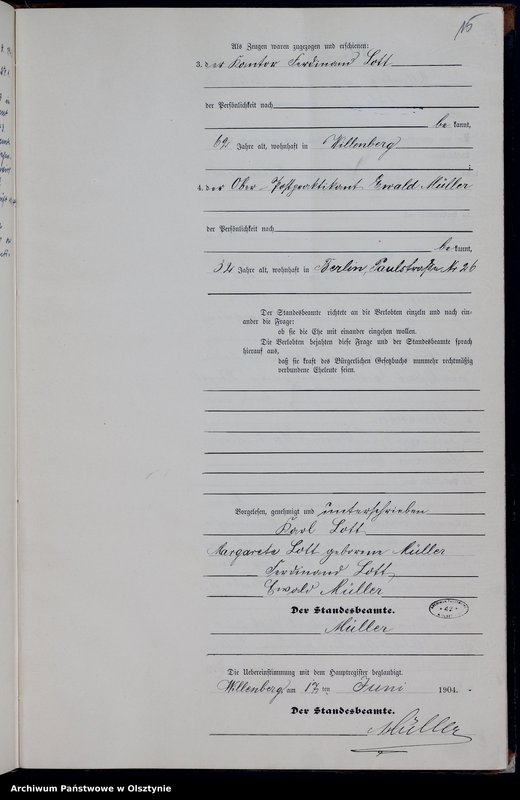 15
Als Zeugen waren zugezogen und erschienen:
3. der Kantor Ferdinand Lott
der Persönlichkeit nach
be kannt,
62 Jahre alt, wohnhaft in Willenberg
;
4. der Ober-Postpraktikant Ewald Müller
der Persönlichkeit nach
be kannt,
32 Jahre alt, wohnhaft in Berlin, Paulstraße Nr 26
Der Standesbeamte richtete an die Verlobten einzeln und nach ein-
ander die Frage:
ob sie die Ehe mit einander eingehen wollen.
Die Verlobten bejahten diese Frage und der Standesbeamte sprach
hierauf aus,
daß sie kraft des Bürgerlichen Gesetzbuchs nunmehr rechtmäßig
verbundene Eheleute seien.
Vorgelesen, genehmigt und unterschrieben
Karl Lott
Margarete Lott geborene Müller
Ferdinand Lott
Ewald Müller
Der Standesbeamte.
Müller
Die Uebereinstimmung mit dem Hauptregister beglaubigt.
Willenberg, am 17 ten Juni 1904.
Der Standesbeamte.
Müller
Archiwum Państwowe w Olsztynie